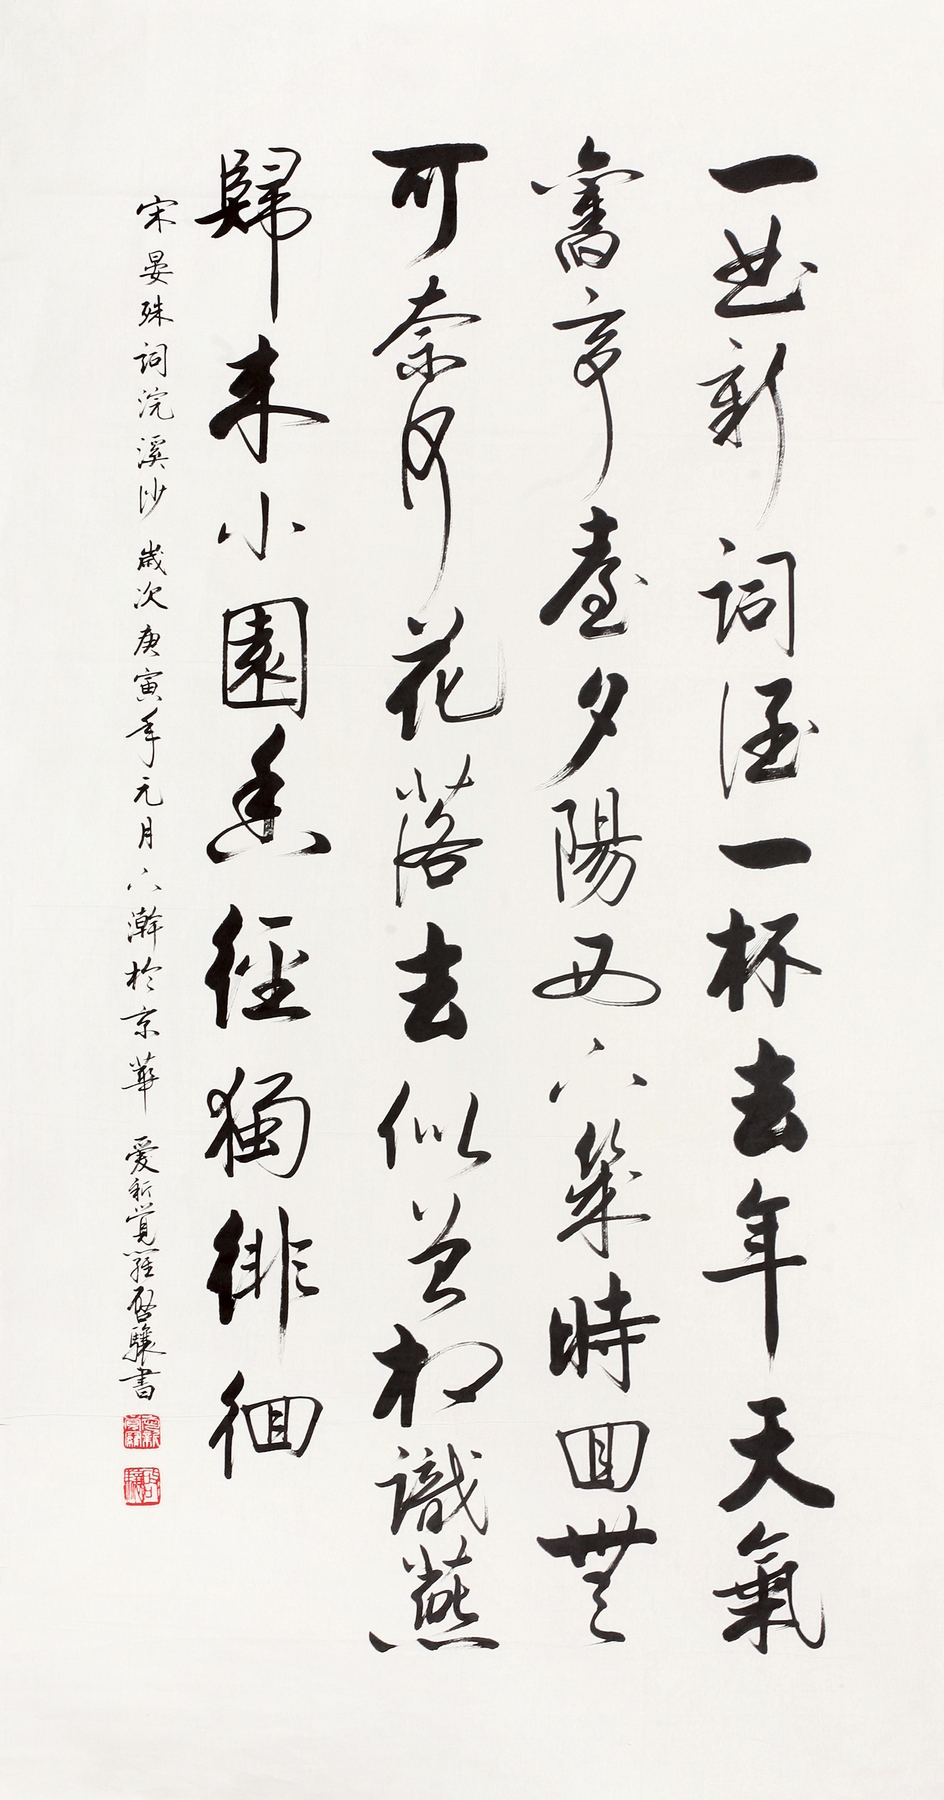 一曲新詞酒一杯去年天氣
舊亭臺夕陽西下幾時回無
可奈何花落去似曾相識燕
歸来小園香徑獨徘徊
宋晏殊詞浣溪沙 歲次庚寅年元月下瀚於京華 爱新覚羅啓驤書